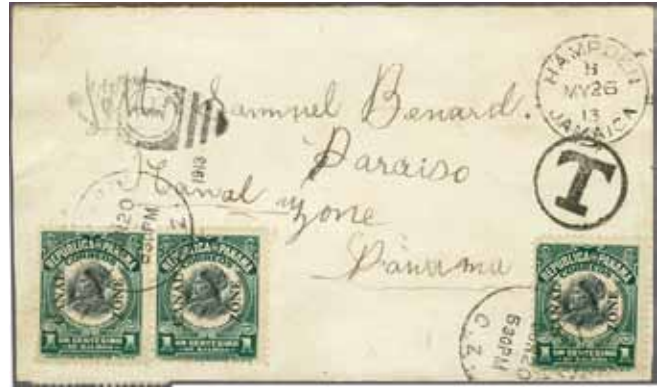 HAMPDEN
MY 26
13
JAMAICA
T
Samuel Benard.
Paraiso
Canal
Zone
Panama
1913
20
530PM
C.Z.
REPUBLICA DE PANAMA
CANAL ZONE
1 UN CENTESIMO 1
DE BALBOA
REPUBLICA DE PANAMA
CANAL ZONE
1 UN CENTESIMO 1
DE BALBOA
REPUBLICA DE PANAMA
CANAL ZONE
1 UN CENTESIMO 1
DE BALBOA
530PM
C.Z.